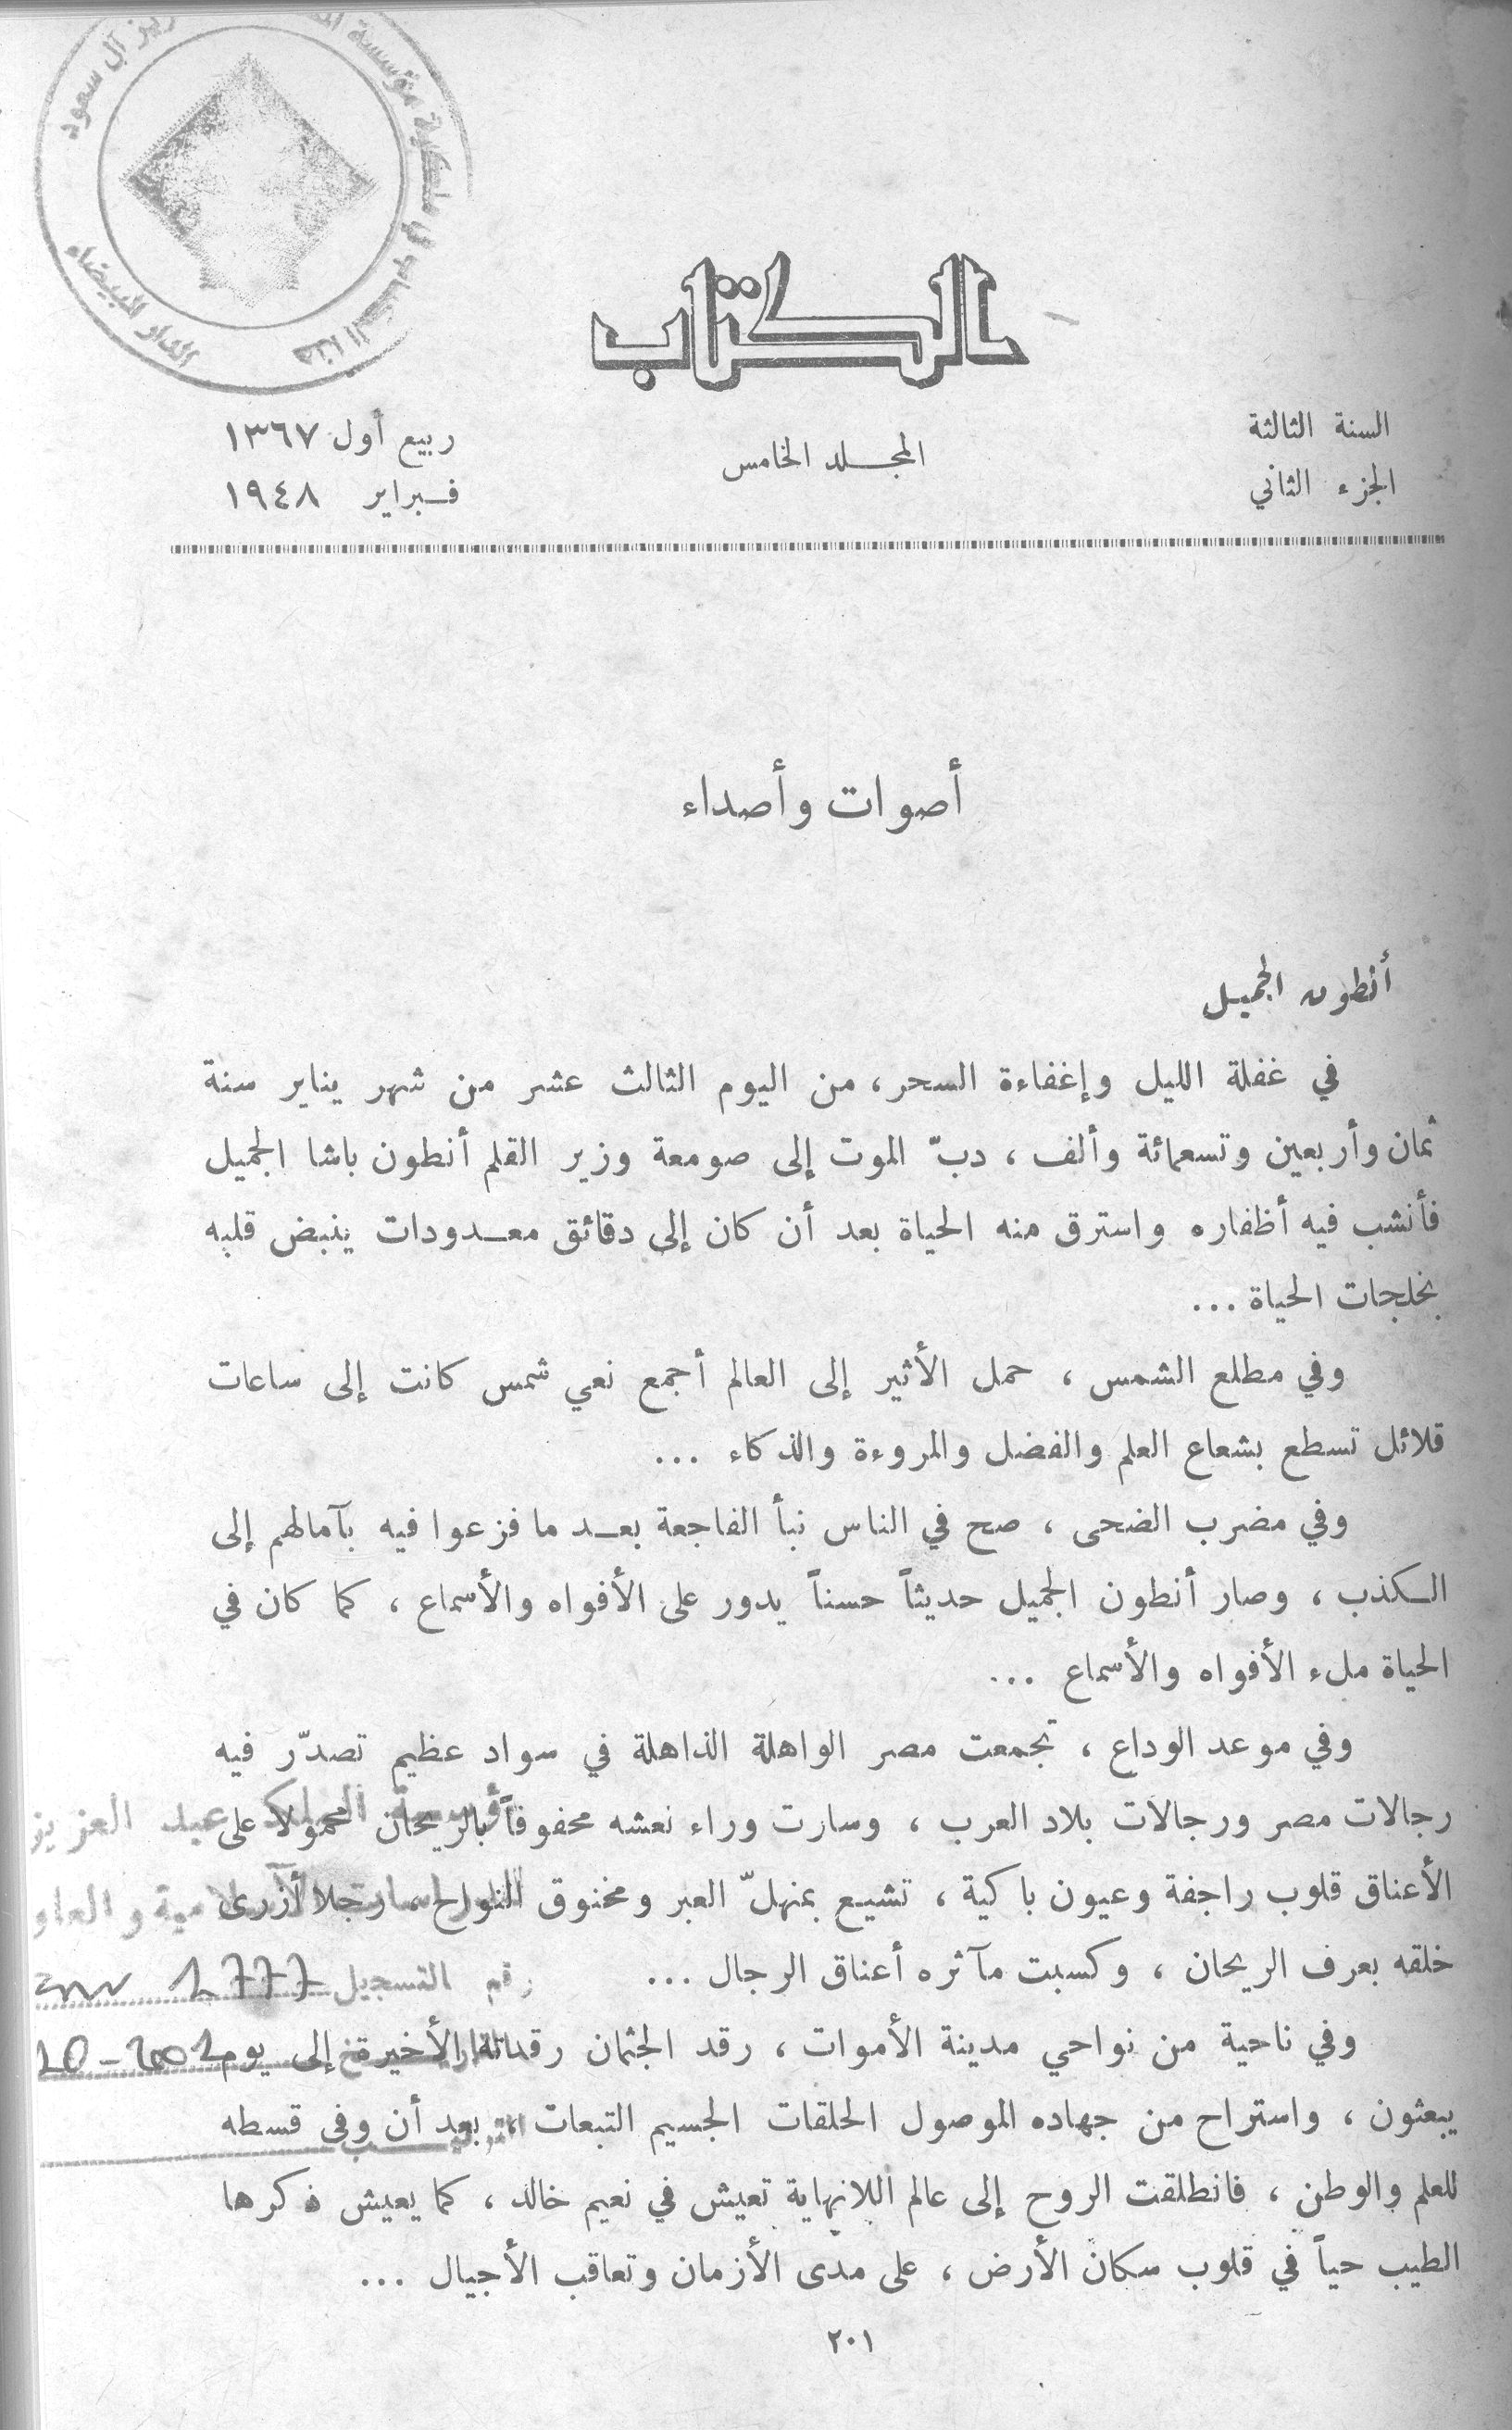 الكتاب
السنة الثالثة
الجزء الثاني
المجلد الخامس
ربيع أول ١٣٦٧
فبراير ١٩٤٨
أصوات وأصداء
أنطون الجميل
في غفلة الليل وإغفاءة السحر، من اليوم الثالث عشر من شهر يناير سنة
ثمان وأربعين وتسعمائة وألف ، دبّ الموت إلى صومعة وزير القلم أنطون باشا الجميل
فأنشب فيه أظفاره واسترق منه الحياة بعد أن كان إلى دقائق معدودات ينبض قلبه
بخلجات الحياة ...
وفي مطلع الشمس ، حمل الأثير إلى العالم أجمع نعي شمس كانت إلى ساعات
قلائل تسطع بشعاع العلم والفضل والمروءة والذكاء ...
وفي مضرب الضحى ، صح في الناس نبأ الفاجعة بعد ما فزعوا فيه بآمالهم إلى
الكذب ، وصار أنطون الجميل حديثاً حسناً يدور على الأفواه والأسماع ، كما كان في
الحياة ملء الأفواه والأسماع ...
وفي موعد الوداع ، تجمعت مصر الواهلة الذاهلة في سواد عظيم تصدّر فيه
رجالات مصر ورجالات بلاد العرب ، وسارت وراء نعشه محفوفاً بالريحان محمولا على
الأعناق قلوب راجفة وعيون باكية ، تشيع بمنهلّ العبر ومخنوق النواح ، رجلا أزرى
خلقه بعرف الريحان ، وكسبت مآثره أعناق الرجال ...
وفي ناحية من نواحي مدينة الأموات ، رقد الجثمان رقدته الأخيرة إلى يوم
يبعثون ، واستراح من جهاده الموصول الحلقات الجسيم التبعات ، بعد أن وفى قسطه
للعلم والوطن ، فانطلقت الروح إلى عالم اللانهاية تعيش في نعيم خالد ، كما يعيش ذكرها
الطيب حياً في قلوب سكان الأرض ، على مدى الأزمان وتعاقب الأجيال ...
٢٠١
آل سعود
الدار البيضاء
عبد العزيز
رقم التسجيل